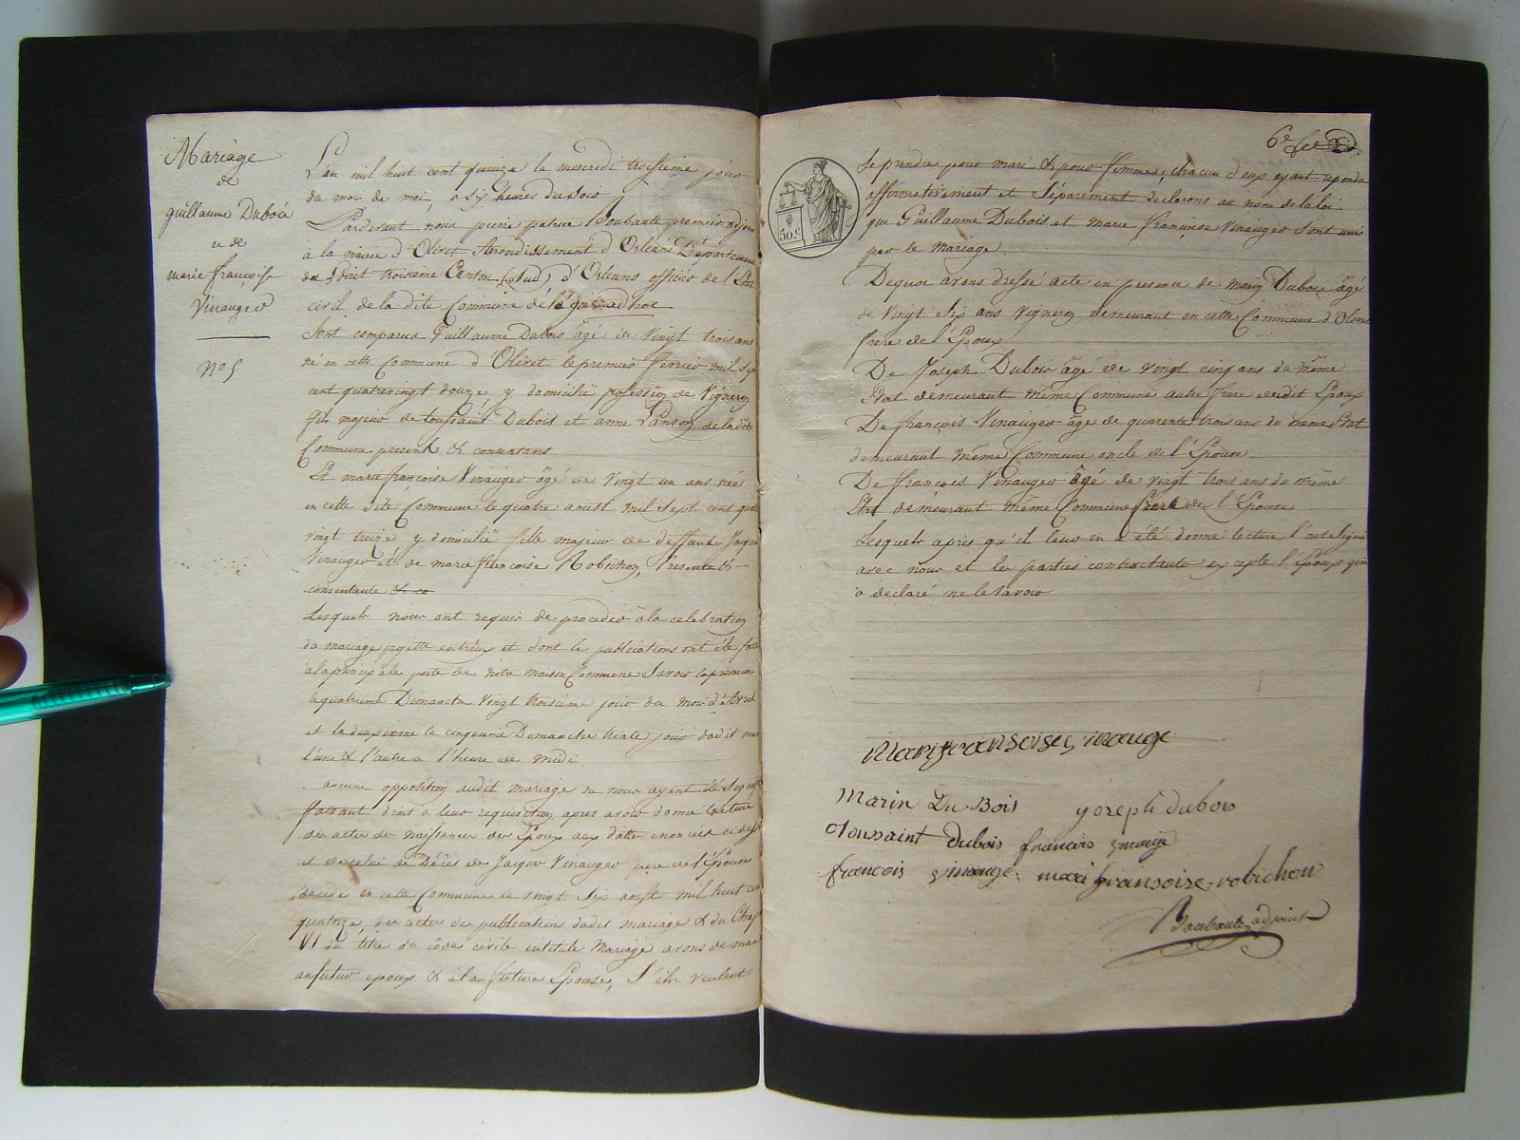 Mariage
de
guillaume Dubois
et de
marie françoise
Vinauger
n° 5
L'an mil huit cent quinze le mercredi troisieme jour
du mois de mai, a six heures du soir
Pardevant nous pierre Boubault premier adjoint
à la mairie d'Olivet Arrondissement d'Orleans Département
du Loiret troisieme Canton (sud) d'Orleans officier de l'Etat
civil de la dite Commune
Sont comparus Guillaume Dubois âgé de vingt trois ans
né en cette Commune d'Olivet le premier fevrier mil sept
cent quatrevingt douze y domicilié profession de Vigneron
fils majeur de toussaint Dubois et anne Panson de la dite
Commune present & consentans
Et marie françoise Vinauger âgé de vingt un ans née
en cette dite Commune le quatre aoust mil sept cent quatre
vingt treize y domicilié fille majeur de deffunt Jacques
Vinauger et de marie francoise Robichon, presente &
consentante & ce
Lesquels nous ont requis de proceder à la celebration
du mariage projetté entr'eux et dont les publications ont été faite
à la principale porte de notre maison Commune Savoir la premiere
le quatrieme Dimanche vingt troisieme jour du mois d'Avril
et la deuxieme le cinquieme Dimanche trente jour dudit mois
l'une & l'autre a l'heure de midi
aucune opposition audit mariage ne nous ayant été signiffié
faisant droit a leur requisition, apres avoir donné lecture
des actes de naissance des Epoux aux dattes enoncées ci dessus
et de celui de Décès de Jacques Vinauger pere de l'Epouse
décédé en cette Commune le vingt six aoust mil huit cent
quatorze, des actes de publication dudit mariage & du Chapitre
VI du titre du code civile intitulé Mariage avons demandé
au futur epoux & à la future Epouse, S'ils veulent
6e
Se prendre pour mari & pour femme, chacun d'eux ayant repondu
affirmativement et Séparement declarons au nom de la loi
que Guillaume Dubois et marie Françoise Vinauger Sont unis
par le mariage.
50 c
De quoi avons dressé acte en presence de marin Dubois âgé
de vingt six ans vigneron demeurant en cette Commune d'Olivet
frere de l'Epoux
De Joseph Dubois âgé de vingt cinq ans du même
Etat demeurant même Commune autre frere dudit Epoux
De françois Vinauger âgé de quarente trois ans du même Etat
demeurant même Commune oncle de l'Epouse
De françois Vinauger âgé de vingt trois ans du même
Etat demeurant même Commune frere de l'Epouse
Lesquels après qu'il leur en a été donné lecture l'ont signé
avec nous et les parties contractante excepté l'Epoux qui
a declaré ne le Savoir
Marin Du Bois
yoseph dubois
toussaint dubois
francois
francois
mari fransoise robichon
Boubault adjoint